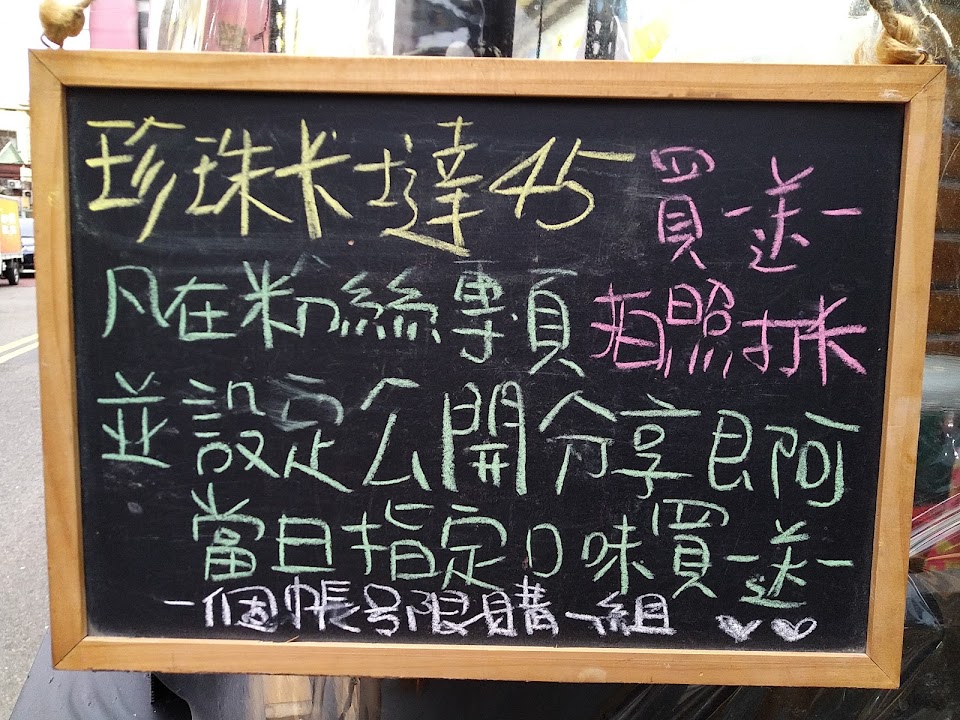 珍珠卡士達45 買一送一
凡在粉絲專頁 拍照打卡
並設定公開分享即可
當日指定口味買一送一
一個帳号限購一組